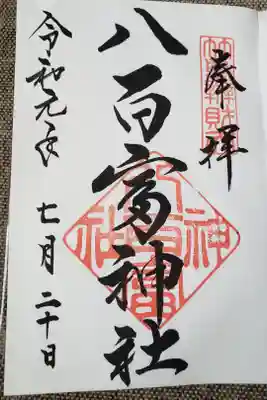 奉拝
八百富神社
令和元年
七月二十日